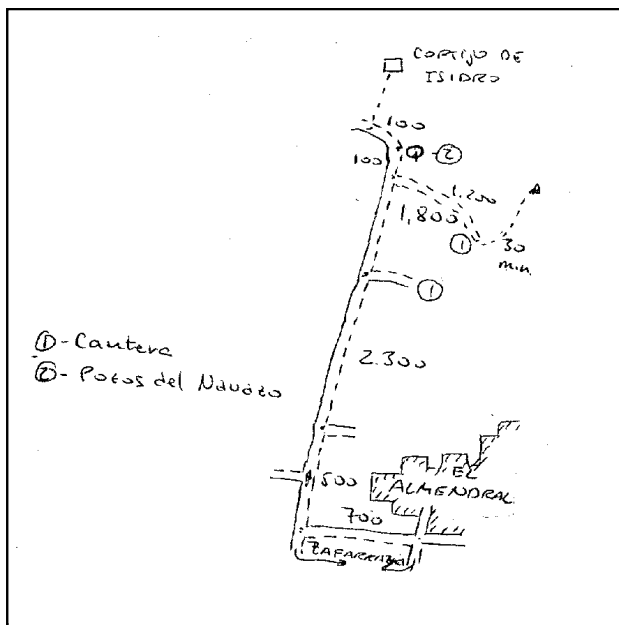 CORTIJO DE
ISIDRO
100
100
②
1.200
1,800
①
30
min.
①
①- Cantera
②- Pozos del Navazo
2.300
500
EL
ALMENDRAL
700
ZAFARRAYA